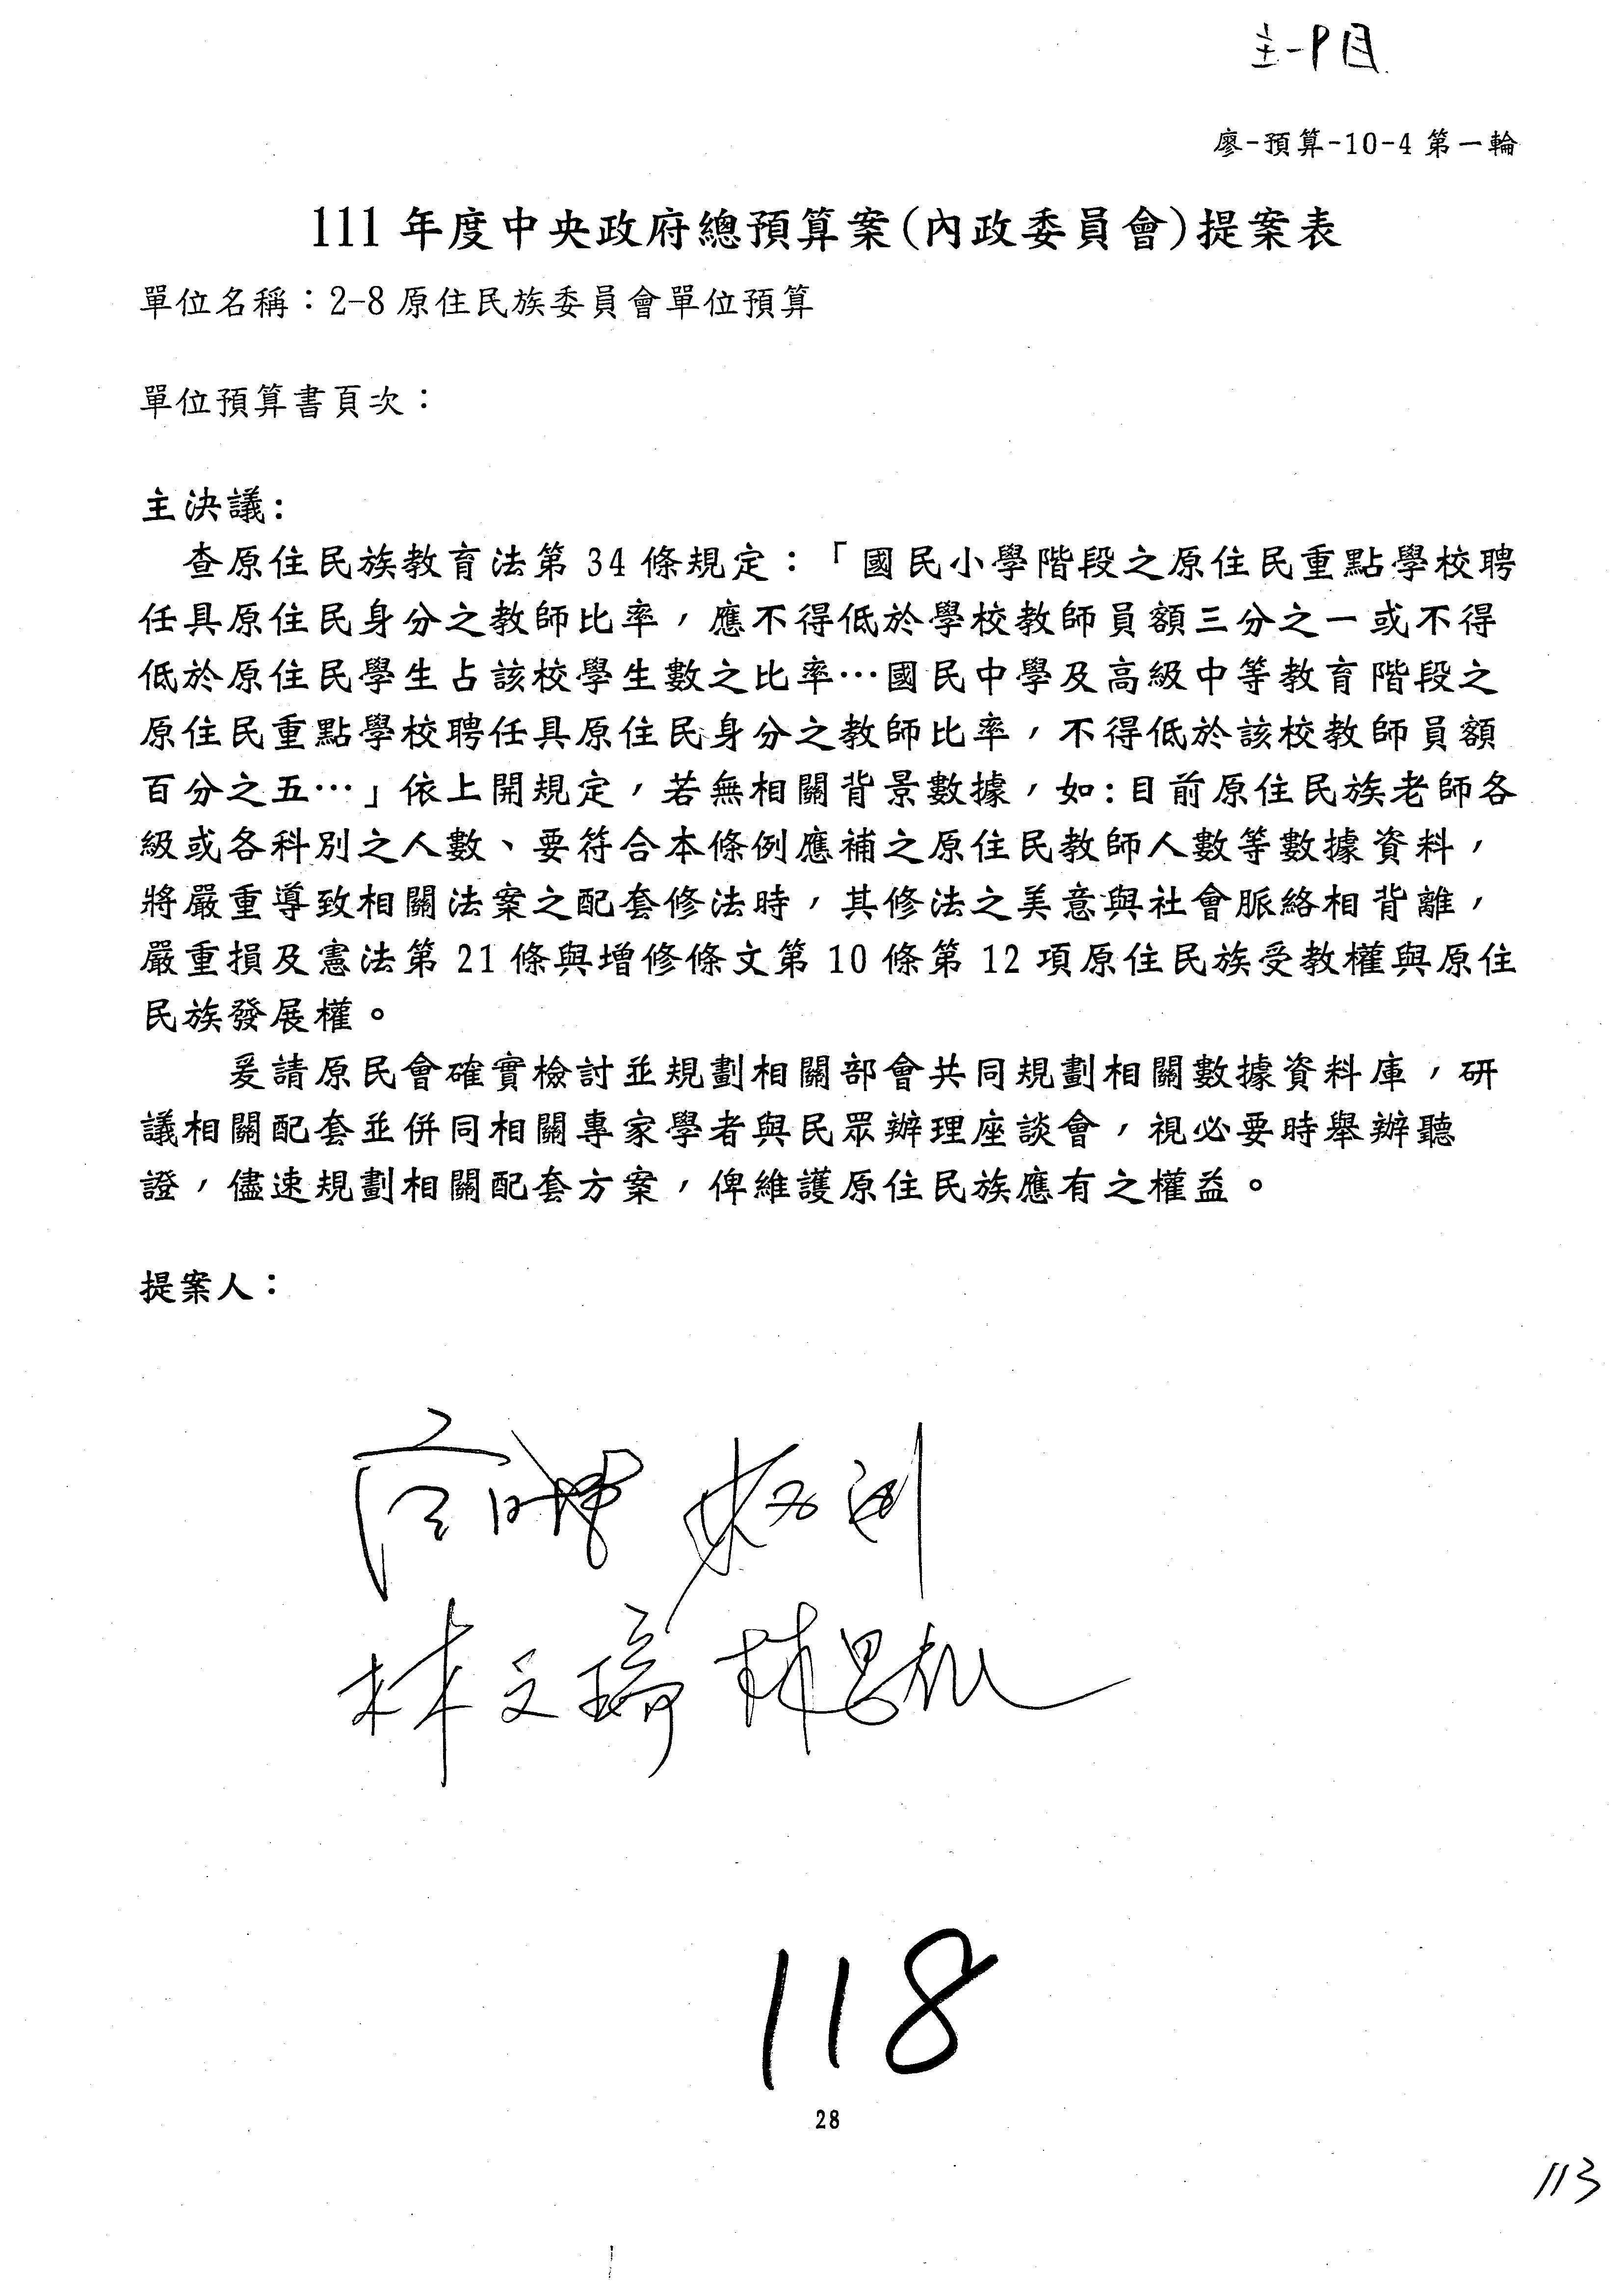 廖-預算-10-4 第一輪
111 年度中央政府總預算案(內政委員會)提案表
單位名稱：2-8 原住民族委員會單位預算
單位預算書頁次：
主決議:
查原住民族教育法第 34 條規定：「國民小學階段之原住民重點學校聘
任具原住民身分之教師比率，應不得低於學校教師員額三分之一或不得
低於原住民學生占該校學生數之比率…國民中學及高級中等教育階段之
原住民重點學校聘任具原住民身分之教師比率，不得低於該校教師員額
百分之五…」依上開規定，若無相關背景數據，如:目前原住民族老師各
級或各科別之人數、要符合本條例應補之原住民教師人數等數據資料，
將嚴重導致相關法案之配套修法時，其修法之美意與社會脈絡相背離，
嚴重損及憲法第 21 條與增修條文第 10 條第 12 項原住民族受教權與原住
民族發展權。
爰請原民會確實檢討並規劃相關部會共同規劃相關數據資料庫，研
議相關配套並併同相關專家學者與民眾辦理座談會，視必要時舉辦聽
證，儘速規劃相關配套方案，俾維護原住民族應有之權益。
提案人：
林文瑞
118
28
113